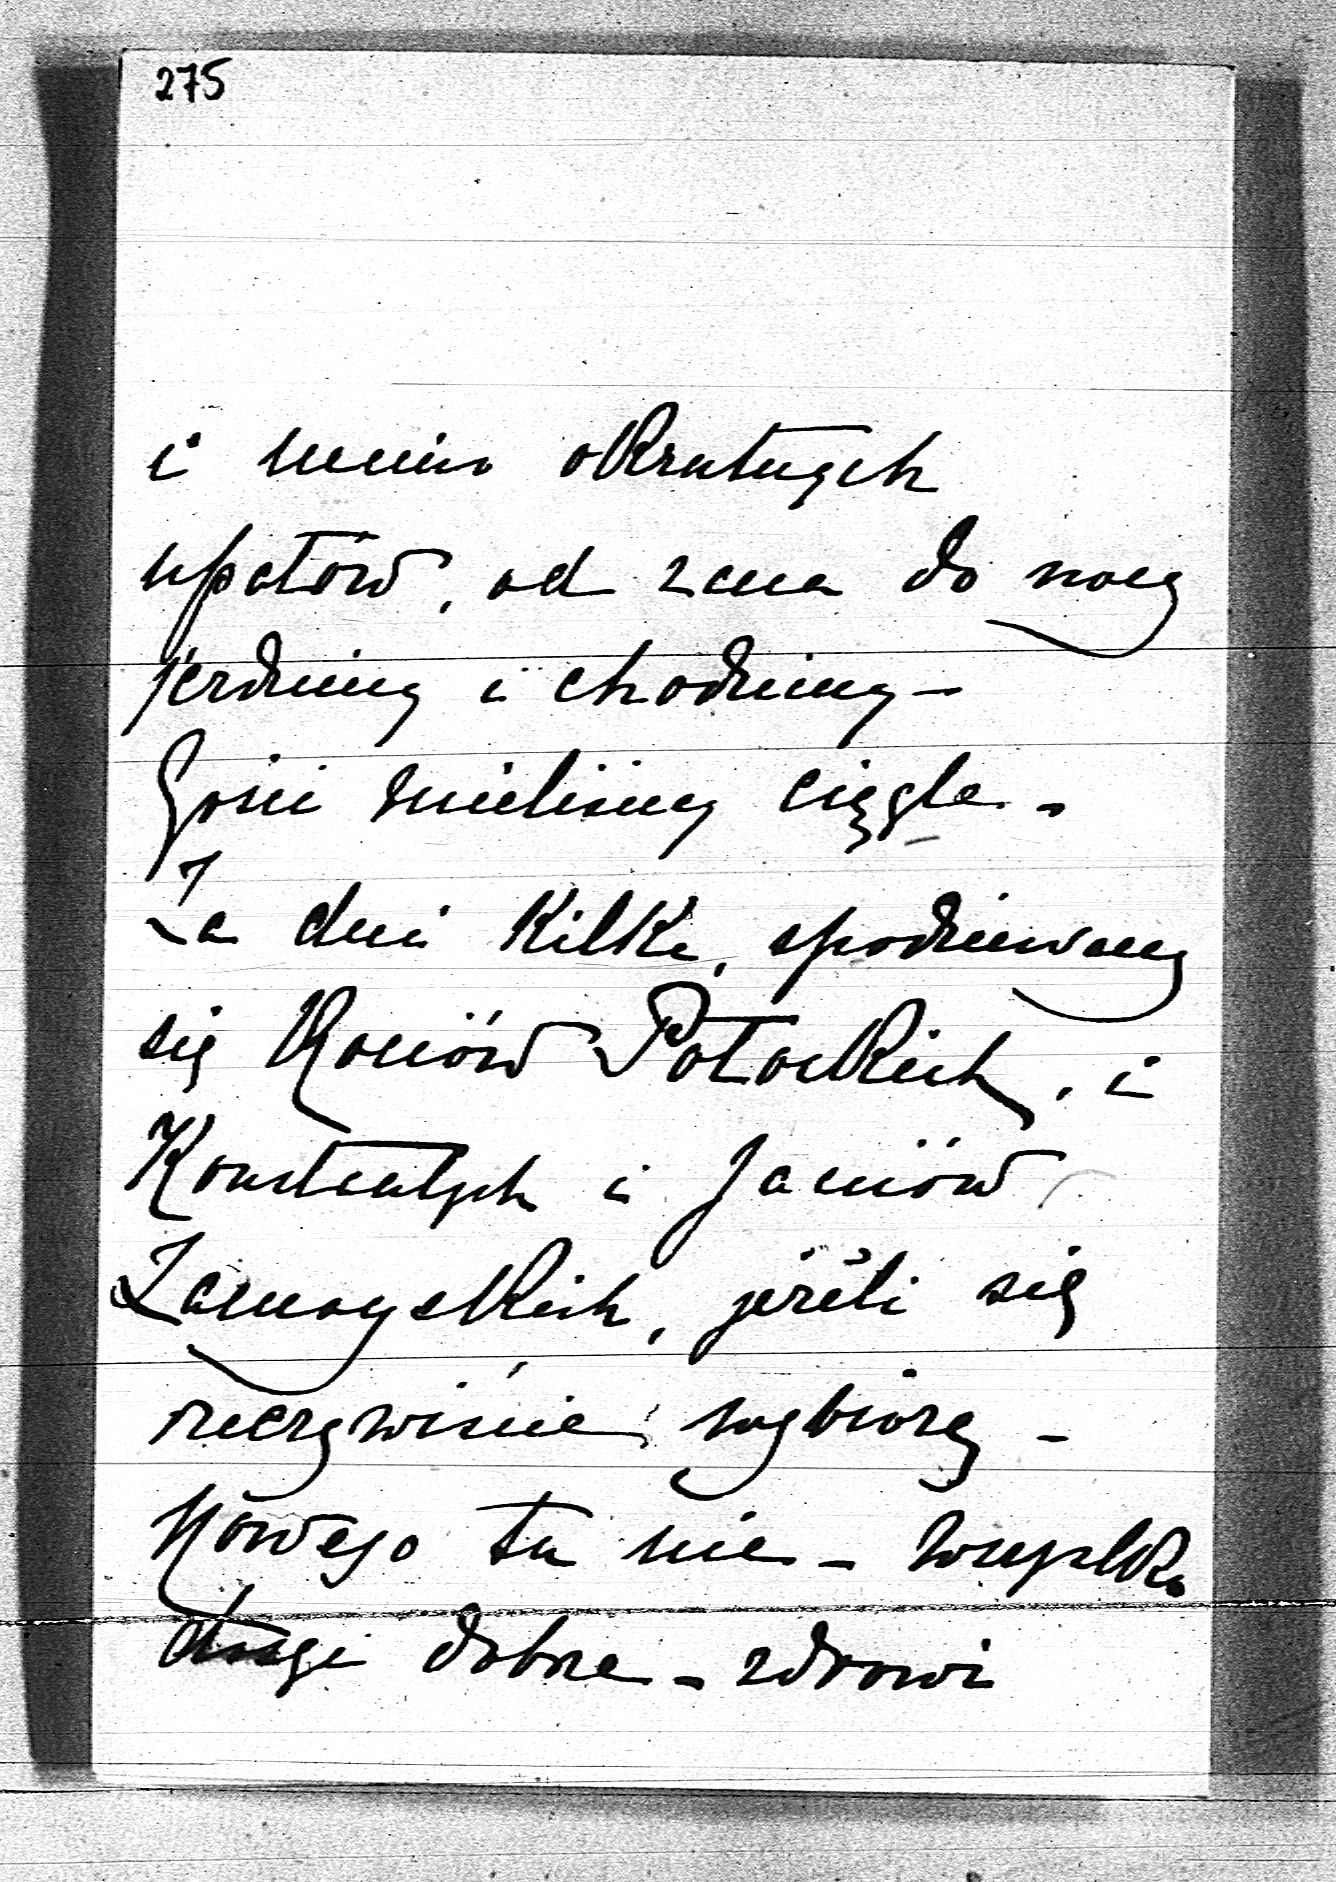 275
i mimo okrutnych
upałów, od rana do nocy
jeździmy i chodzimy –
Gości mieliśmy ciągle –
Za dni kilka, spodziewamy
się Romów Potockich, i
Konstantych i Janiów
Zamoyskich, jeżeli się
rzeczywiście wybiorą –
Nowego tu nic – wszystko
dobrze – zdrowi